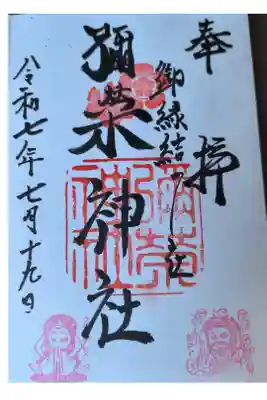 奉拝
御縁結びの社
彌栄神社
彌榮
神社
令和七年七月十九日